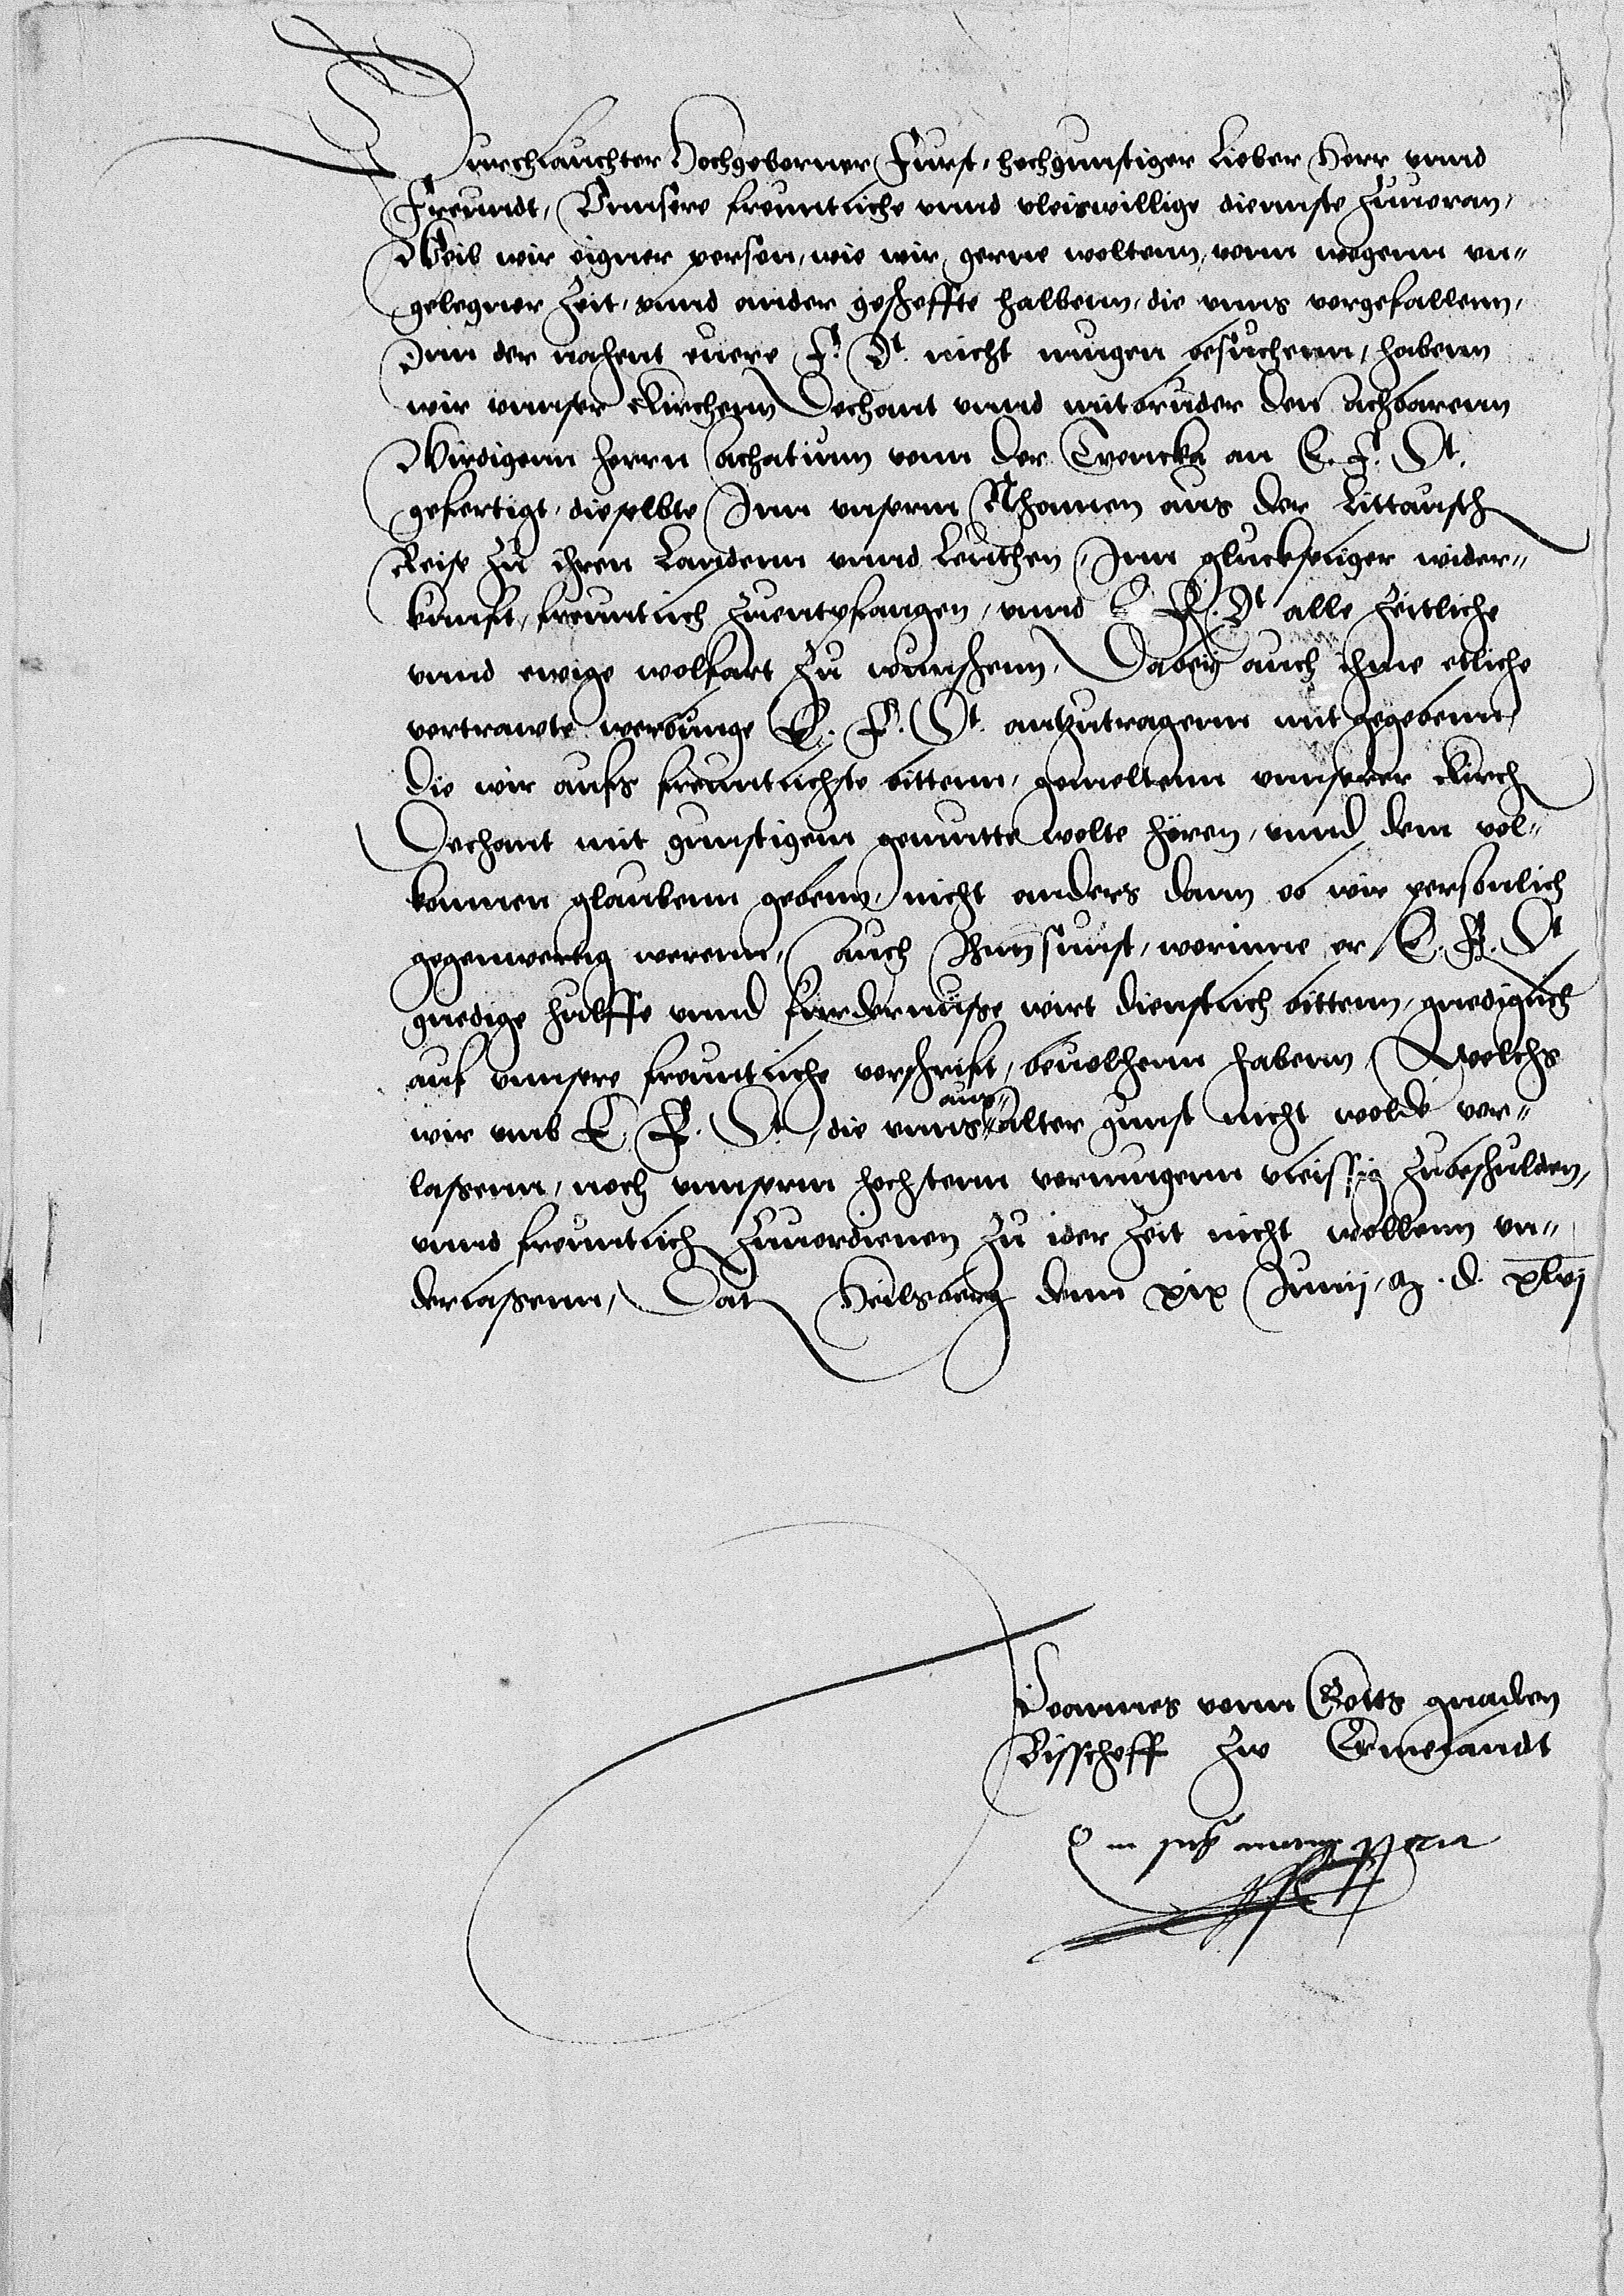 Durchlauchter Hochgeborner Furst, hochgunstiger Lieber Herr unnd
Freundt, Unnsere freuntliche unnd vleiswillige diennste zuuoran,
Weil wir eigner person, wie wir gerne woltenn, vonn wegenn un-
gelegner Zeit, unnd ander gescheffte halbenn, die unns vorgefallenn,
Inn der nahent euere F. Dt. nicht mugen besuchenn, habenn
wir unnser Kirchenn Dechant unnd mitbruder den Achbarenn
Wirdigenn herrn Achatium vonn der Trencka an E. F. Dt.
gefertigt, dieselbte Inn unserm Nhamen aus der Littausch
Reise zu ihren Landenn unnd Leuthen, Inn gluckseliger wider-
kunfft, freuntlich zuentpfangen, unnd E F. Dt alle zeitliche
unnd ewige wolfart zu wunschenn, Dabeij auch ihme etliche
vertrawte werbunge E. F. Dt. antzutragenn mit gegebenn,
die wir aufs freuntlichste bittenn, gemeltenn unnserer Kirch
Dechant mit gunstigem gemutte wolte hören, unnd dem vol-
komnen glaubenn gebenn, nicht anders dann ob wir personlich
gegenwertig werenn, Auch Ihnn sunst, worinne er E. F. Dt
gnedige hulffe unnd furdernuße wirt dienstlich bittenn, gnediglich
auf unnsere freuntliche vorschrift, beuolhenn habenn, Welchs
wir umb E. F. Dt, die unns aus alter gunst nicht wolde vor-
laßenn, noch unnserm hochstenn vormugenn vleissig zubeschulden,
unnd freuntlich zuuordienen zu ider Zeit nicht wollenn un-
derlaßenn, Dat Heilsberg denn xix Junij, A. d. xlvj
Joannes vonn Gotts gnaden
Bisschoff zw Ermelandt